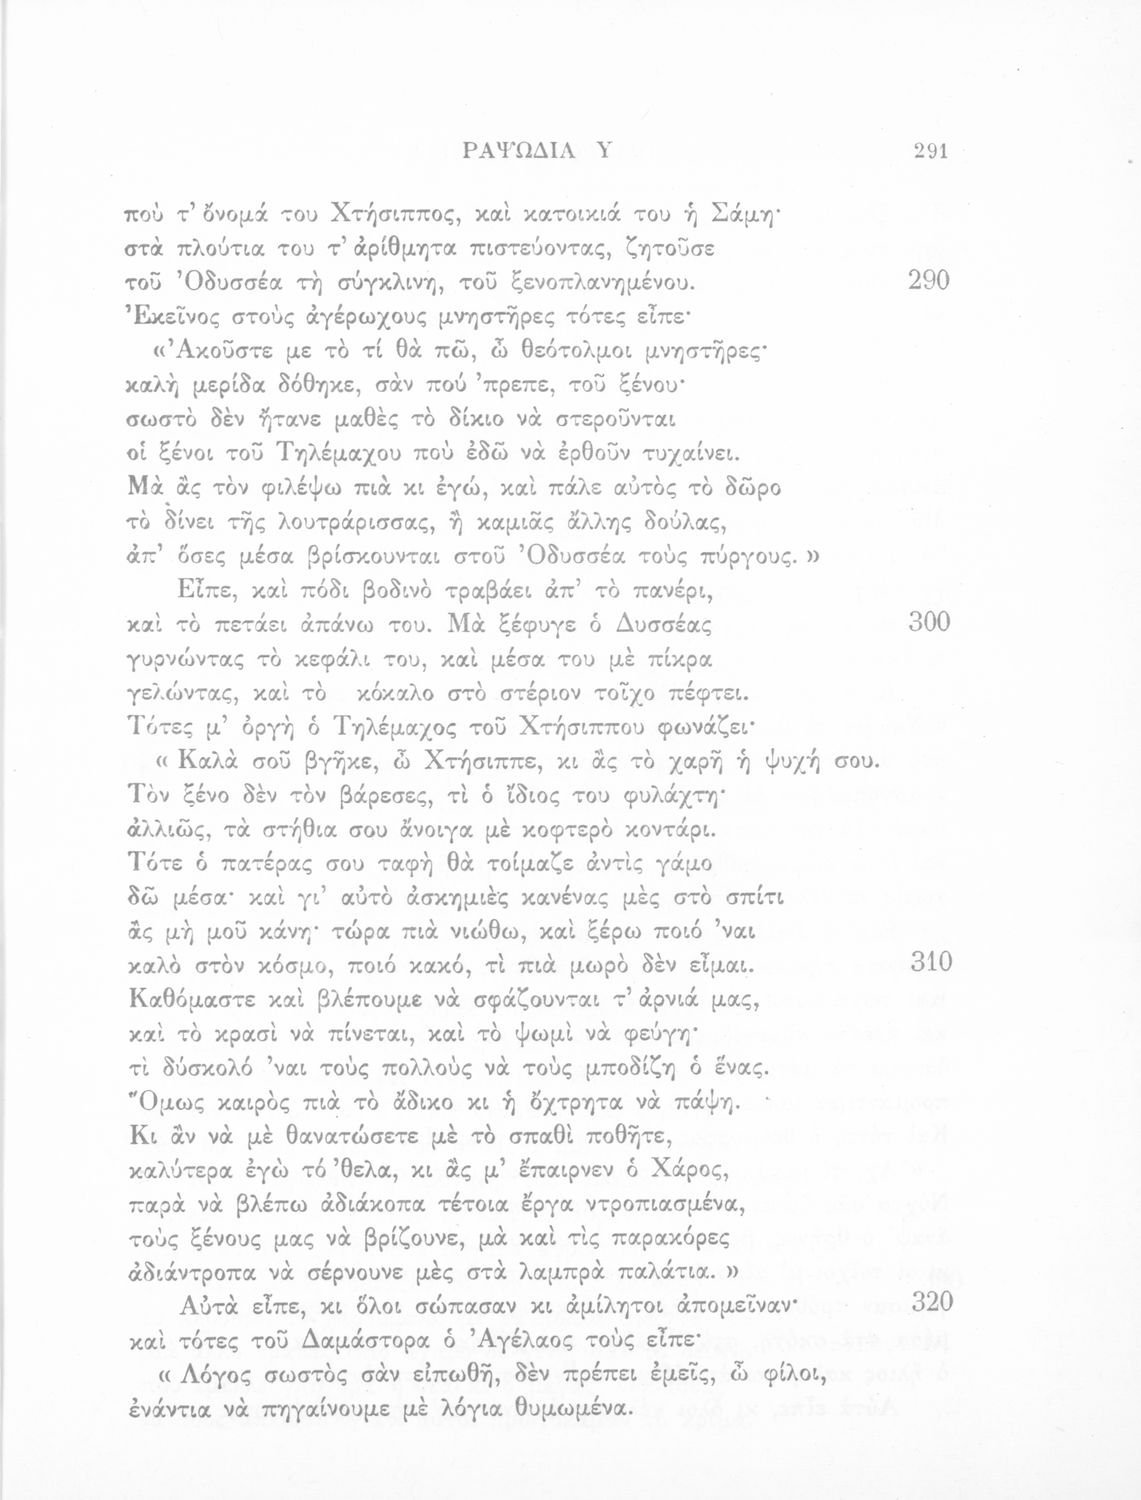 ΡΑΨΩΔΙΑ Υ 291
ποὺ τ’ ὄνομά του Χτήσιππος, καὶ κατοικιά του ἡ Σάμη·
στὰ πλούτια του τ’ ἀρίθμητα πιστεύοντας, ζητοῦσε
τοῦ Ὀδυσσέα τὴ σύγκλινη, τοῦ ξενοπλανημένου. 290
Ἐκεῖνος στοὺς ἀγέρωχους μνηστῆρες τότες εἶπε·
«Ἀκοῦστε με τὸ τί θὰ πῶ, ὦ θεότολμοι μνηστῆρες·
καλὴ μερίδα δόθηκε, σὰν πού ’πρεπε, τοῦ ξένου·
σωστὸ δὲν ἤτανε μαθὲς τὸ δίκιο νὰ στεροῦνται
οἱ ξένοι τοῦ Τηλέμαχου ποὺ ἐδῶ νὰ ἐρθοῦν τυχαίνει.
Μὰ ἂς τὸν φιλέψω πιὰ κι ἐγώ, καὶ πάλε αὐτὸς τὸ δῶρο
τὸ δίνει τῆς λουτράρισσας, ἢ καμιᾶς ἄλλης δούλας,
ἀπ’ ὅσες μέσα βρίσκουνται στοῦ Ὀδυσσέα τοὺς πύργους. »
Εἶπε, καὶ πόδι βοδινὸ τραβάει ἀπ’ τὸ πανέρι,
καὶ τὸ πετάει ἀπάνω του. Μὰ ξέφυγε ὁ Δυσσέας 300
γυρνώντας τὸ κεφάλι του, καὶ μέσα του μὲ πίκρα
γελώντας, καὶ τὸ κόκαλο στὸ στέριον τοῖχο πέφτει.
Τότες μ’ ὀργὴ ὁ Τηλέμαχος τοῦ Χτήσιππου φωνάζει·
« Καλὰ σοῦ βγῆκε, ὦ Χτήσιππε, κι ἂς τὸ χαρῆ ἡ ψυχή σου.
Τὸν ξένο δὲν τὸν βάρεσες, τὶ ὁ ἴδιος του φυλάχτη·
ἀλλιῶς, τὰ στήθια σου ἄνοιγα μὲ κοφτερὸ κοντάρι.
Τότε ὁ πατέρας σου ταφὴ θὰ τοίμαζε ἀντὶς γάμο
δῶ μέσα· καὶ γι’ αὐτὸ ἀσκημιὲς κανένας μὲς στὸ σπίτι
ἂς μὴ μοῦ κάνη· τώρα πιὰ νιώθω, καὶ ξέρω ποιό ’ναι
καλὸ στὸν κόσμο, ποιό κακό, τὶ πιὰ μωρὸ δὲν εἶμαι. 310
Καθόμαστε καὶ βλέπουμε νὰ σφάζουνται τ’ ἀρνιά μας,
καὶ τὸ κρασὶ νὰ πίνεται, καὶ τὸ ψωμὶ νὰ φεύγη·
τὶ δύσκολό ’ναι τοὺς πολλοὺς νὰ τοὺς μποδίζη ὁ ἕνας.
Ὅμως καιρὸς πιὰ τὸ ἄδικο κι ἡ ὄχτρητα νὰ πάψη.
Κι ἂν νὰ μὲ θανατώσετε μὲ τὸ σπαθὶ ποθῆτε,
καλύτερα ἐγὼ τό ’θελα, κι ἂς μ’ ἔπαιρνεν ὁ Χάρος,
παρὰ νὰ βλέπω ἀδιάκοπα τέτοια ἔργα ντροπιασμένα,
τοὺς ξένους μας νὰ βρίζουνε, μὰ καὶ τὶς παρακόρες
ἀδιάντροπα νὰ σέρνουνε μὲς στὰ λαμπρὰ παλάτια. »
Αὐτὰ εἶπε, κι ὅλοι σώπασαν κι ἀμίλητοι ἀπομεῖναν· 320
καὶ τότες τοῦ Δαμάστορα ὁ Ἀγέλαος τοὺς εἶπε·
« Λόγος σωστὸς σὰν εἰπωθῆ, δὲν πρέπει ἐμεῖς, ὦ φίλοι,
ἐνάντια νὰ πηγαίνουμε μὲ λόγια θυμωμένα.